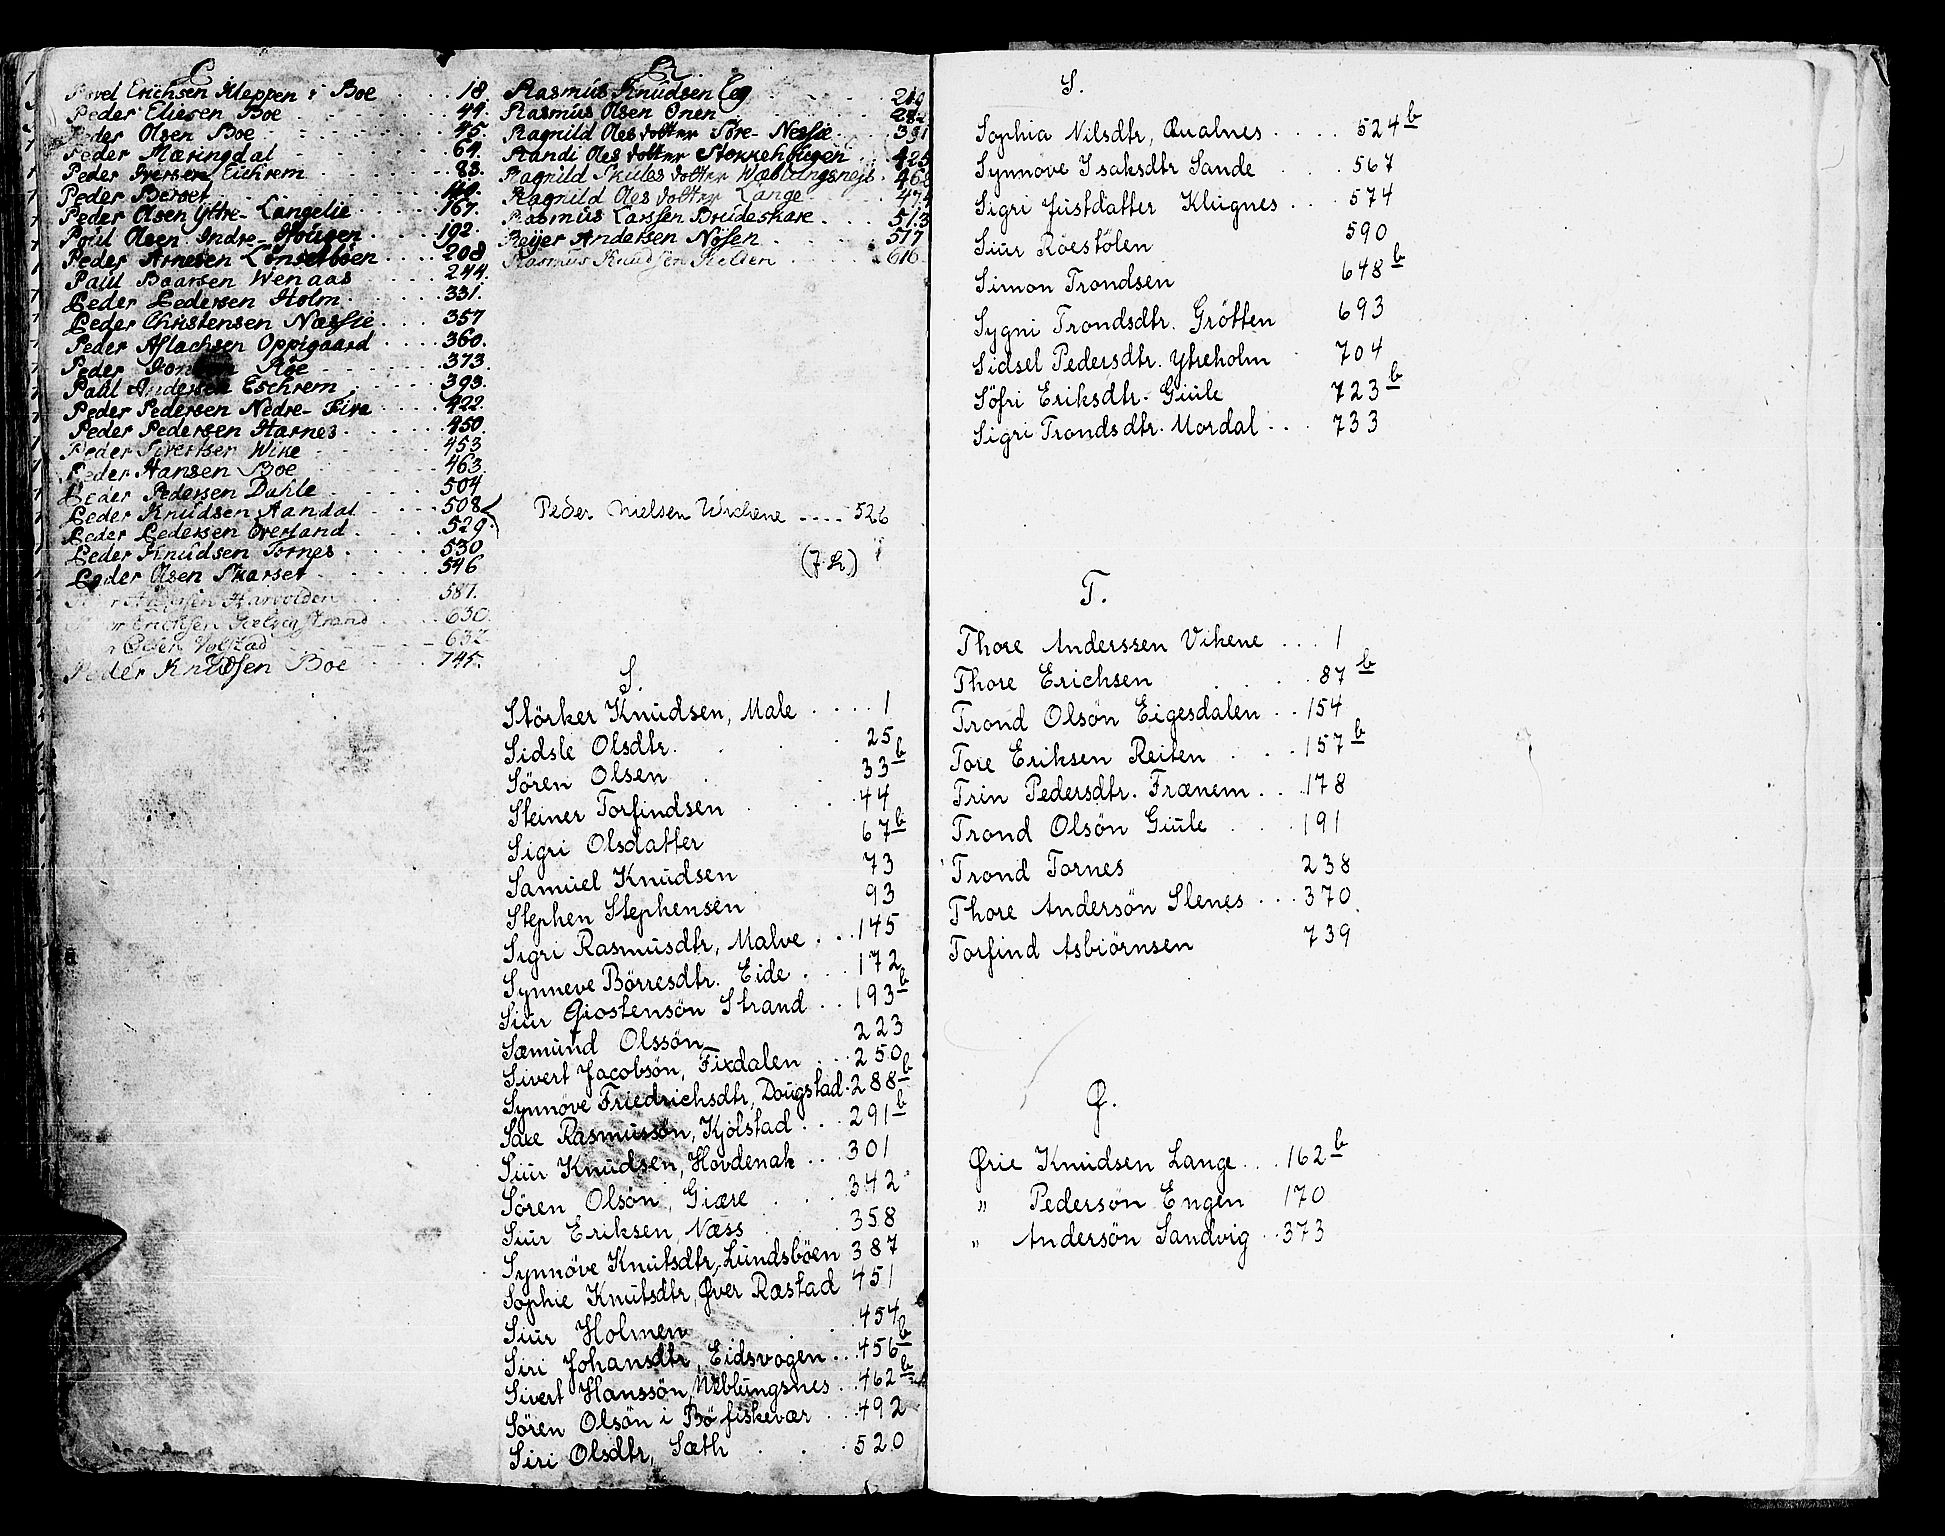 P.
Povel Erichsen Kleppen i Boe 18
Peder Eliesen Boe 44.
Peder Olsen Boe 45.
Peder Mæringdal 64.
Peder Iversen Eichrem 83.
Peder Berset
Peder Olsen Yttre-Langelie 167.
Poul Olsen Indre-Hougen 192.
Peder Arnesen Lönsetböen 208
Paul Baarsen Wenaas 244.
Peder Pedersen Holm 331.
Peder Christensen Næssie 357
Peder Aslachsen Oppigaard 360.
Peder Roe 373
Paul Andersen Eschrem 393.
Peder Pedersen Nedre-Fira 422.
Peder Pedersen Harnes 450.
Peder Sivertsen Wike 453
Peder Hansen Boe 463.
Peder Pedersen Dahle 504
Peder Knudsen Aandal 508
Peder Pedersen Overland 529.
Peder Knudsen Tornes 530
Peder Olsen Skarset 546
Harvolden 581.
Erichsen 630.
Olsen Volstad 632.
Peder Knudsen Boe 745.
R.
Rasmus Knudsen Eeg 219
Rasmus Olsen Onen
Ragnild Olesdotter Søre-Nessie 381
Randi Olesdotter Stokkehougen 425
Ragnild Skulesdotter Wæblungsnæss 468
Ragnild Olesdotter Lange 474
Rasmus Larssen Brudeskare 513
Reijer Andersen Nösen 577
Rasmus Knudsen Kelden 616.
Peder Nielsen Wichene .... 526
S.
Störker Knudsen, Male 1
Sidsle Olsdtr. 25
Sören Olsen 33 b
Steiner Torfindsen 44
Sigri Olsdatter 67 b
Samuel Knudsen 73
Stephen Stephensen 93
Sigri Rasmusdtr, Malve 145
Synneve Börresdtr. Eide 172
Siur Giostensön Strand 193 b
Sæmund Olssön 223
Sivert Jacobsön, Fixdalen 250
Synnöve Friedrichsdtr, Dougstad 288 b
Saxe Rasmussön, Kjölstad 291 b
Siur Knudsen, Hovdenak 301
Sören Olsön, Giære 342
Siur Eriksen, Næss 358
Synnöve Knutsdtr, Lundsböen 387
Sophie Knutsdtr, Øver Rastad 451
Siur Holmen 454
Siri Johansdtr, Eidsvogen 456 b
Sivert Hanssön, Weblungsnes 462 b
Sören Olsön i Bö fiskevær 492
Siri Olsdtr, Sæth 520
S.
Sophia Nilsdtr, Qualnes 524 b
Synnöve Isaksdtr Sande 567
Sigri Justdatter Klugnes 574
Siur Röestölen 590
Simon Trondsen 648 b
Sygni Trondsdtr. Grötten 693
Sidsel Pedersdtr. Ytreholm 704
Söfri Eriksdtr. Giule 723 b
Sigri Trondsdtr. Mordal 733
T.
Thore Anderssen Vikene 1
Thore Erichsen 87 b
Trond Olsön Eigesdalen 154
Tore Eriksen Reiten 157 b
Trin Pedersdtr. Frænem 178
Trond Olsön Giule 191
Trond Tornes 238
Thore Andersön Slenes 370
Torfind Asbiörnsen 739
Ø.
Ørie Knudsen Lange 162 b
" Pedersön Engen 170
" Andersön Sandvig 373